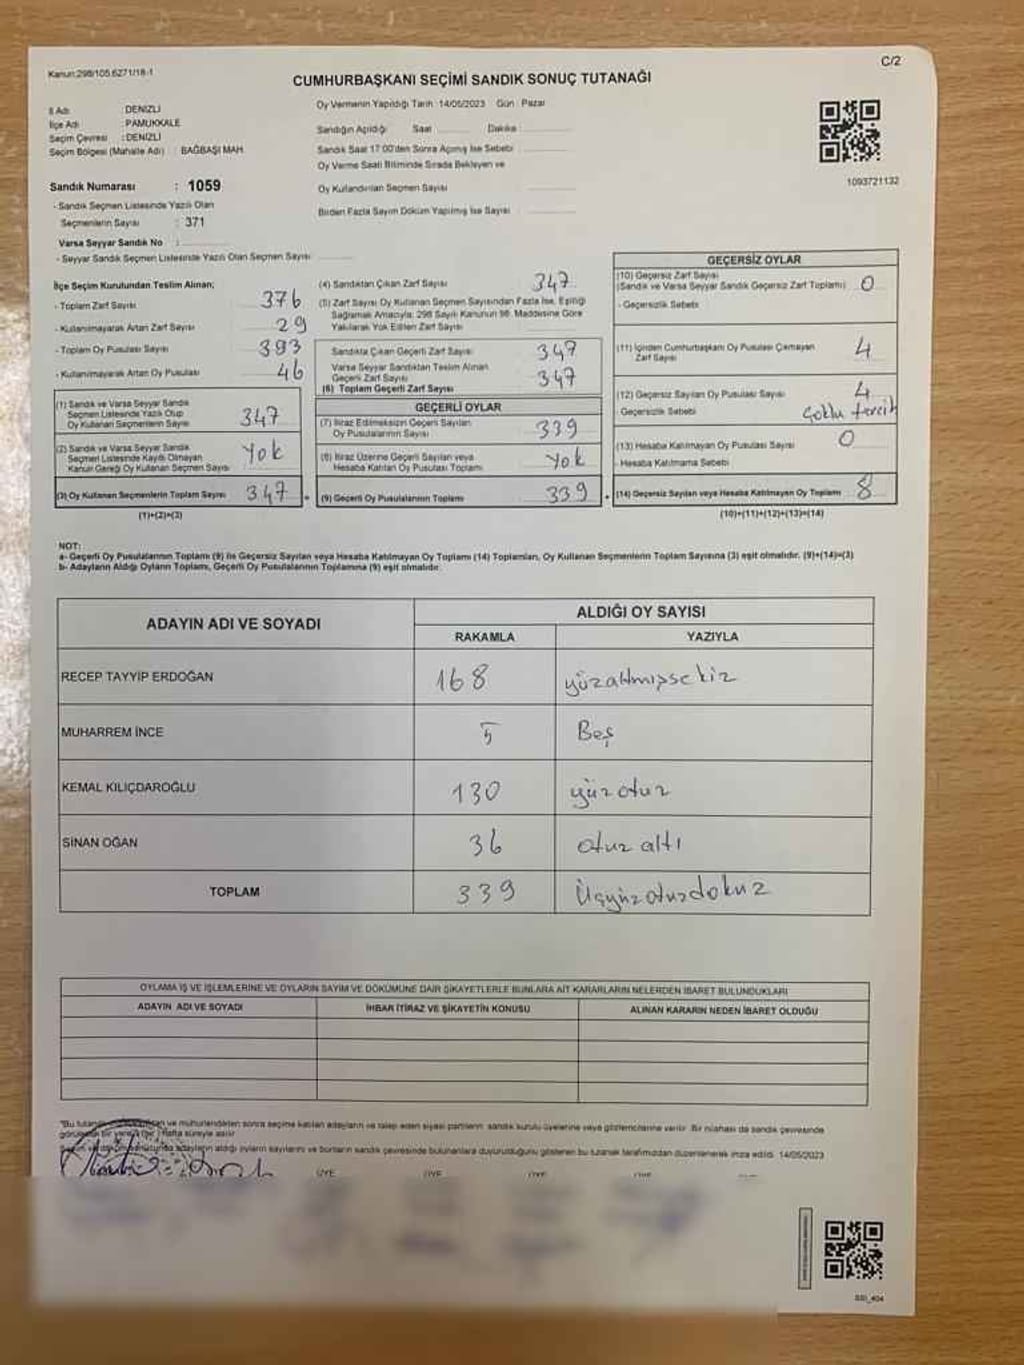 Kanun:298/105.6271/18-1
C/2
CUMHURBAŞKANI SEÇİMİ SANDIK SONUÇ TUTANAĞI
İl Adı : DENİZLİ
İlçe Adı : PAMUKKALE
Seçim Çevresi : DENİZLİ
Seçim Bölgesi (Mahalle Adı) : BAĞBAŞI MAH.
Oy Vermenin Yapıldığı Tarih :14/05/2023 Gün : Pazar
Sandığın Açıldığı Saat Dakika :
Sandık Saat 17:00'den Sonra Açılmış İse Sebebi :
Oy Verme Saati Bitiminde Sırada Bekleyen ve
Oy Kullandırılan Seçmen Sayısı
Birden Fazla Sayım Döküm Yapılmış İse Sayısı
1093721132
Sandık Numarası : 1059
- Sandık Seçmen Listesinde Yazılı Olan
Seçmenlerin Sayısı : 371
Varsa Seyyar Sandık No :
- Seyyar Sandık Seçmen Listesinde Yazılı Olan Seçmen Sayısı
İlçe Seçim Kurulundan Teslim Alınan;
- Toplam Zarf Sayısı 376
- Kullanılmayarak Artan Zarf Sayısı 29
- Toplam Oy Pusulası Sayısı 393
- Kullanılmayarak Artan Oy Pusulası 46
(1) Sandık ve Varsa Seyyar Sandık
Seçmen Listesinde Yazılı Olup
Oy Kullanan Seçmenlerin Sayısı 347
(2) Sandık ve Varsa Seyyar Sandık
Seçmen Listesinde Kaydı Olmayan
Kanun Gereği Oy Kullanan Seçmen Sayısı Yok
(3) Oy Kullanan Seçmenlerin Toplam Sayısı 347
(1)+(2)=(3)
(4) Sandıktan Çıkan Zarf Sayısı 347
(5) Zarf Sayısı Oy Kullanan Seçmen Sayısından Fazla İse, Eşitliği
Sağlamak Amacıyla; 298 Sayılı Kanunun 98. Maddesine Göre
Yakılarak Yok Edilen Zarf Sayısı
Sandıkta Çıkan Geçerli Zarf Sayısı 347
Varsa Seyyar Sandıktan Teslim Alınan
Geçerli Zarf Sayısı
(6) Toplam Geçerli Zarf Sayısı 347
GEÇERLİ OYLAR
(7) İtiraz Edilmeksizin Geçerli Sayılan
Oy Pusulalarının Sayısı 339
(8) İtiraz Üzerine Geçerli Sayılan veya
Hesaba Katılan Oy Pusulası Toplamı Yok
(9) Geçerli Oy Pusulalarının Toplamı 339
GEÇERSİZ OYLAR
(10) Geçersiz Zarf Sayısı
(Sandık ve Varsa Seyyar Sandık Geçersiz Zarf Toplamı) 0
- Geçersizlik Sebebi
(11) İçinden Cumhurbaşkanı Oy Pusulası Çıkmayan
Zarf Sayısı 4
(12) Geçersiz Sayılan Oy Pusulası Sayısı 4
- Geçersizlik Sebebi Çoklu tercih
(13) Hesaba Katılmayan Oy Pusulası Sayısı 0
- Hesaba Katılmama Sebebi
(14) Geçersiz Sayılan veya Hesaba Katılmayan Oy Toplamı 8
(10)+(11)+(12)+(13)=(14)
NOT:
a- Geçerli Oy Pusulalarının Toplamı (9) ile Geçersiz Sayılan veya Hesaba Katılmayan Oy Toplamı (14) Toplamları, Oy Kullanan Seçmenlerin Toplam Sayısına (3) eşit olmalıdır. (9)+(14)=(3)
b- Adayların Aldığı Oyların Toplamı, Geçerli Oy Pusulalarının Toplamına (9) eşit olmalıdır.
ADAYIN ADI VE SOYADI
ALDIĞI OY SAYISI
RAKAMLA YAZIYLA
RECEP TAYYİP ERDOĞAN 168 yüzaltmışsekiz
MUHARREM İNCE 5 Beş
KEMAL KILIÇDAROĞLU 130 yüz otuz
SİNAN OĞAN 36 otuz altı
TOPLAM 339 Üçyüz otuz dokuz
OYLAMA İŞ VE İŞLEMLERİNE VE OYLARIN SAYIM VE DÖKÜMÜNE DAİR ŞİKAYETLERLE BUNLARA AİT KARARLARIN NELERDEN İBARET BULUNDUKLARI
ADAYIN ADI VE SOYADI İHBAR İTİRAZ VE ŞİKAYETİN KONUSU ALINAN KARARIN NEDEN İBARET OLDUĞU
ve mühürlendikten sonra seçime katılan adayların ve talep eden siyasi partilerin sandık kurulu üyelerine veya gözlemcilerine verilir. Bir nüshası da sandık çevresinde
hafta süreyle asılır
adayların aldığı oyların sayılarını ve bunların sandık çevresinde bulunanlara duyurulduğunu gösteren bu tutanak tarafımızdan düzenlenerek imza edildi. 14/05/2023
ÜYE ÜYE ÜYE ÜYE
SSI_404